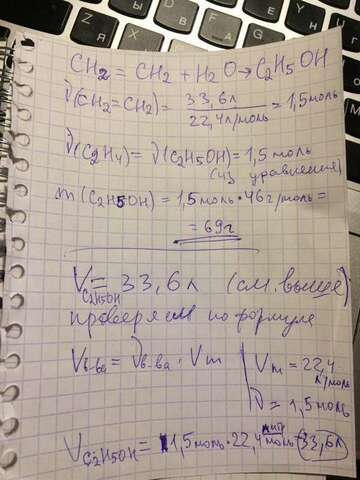 CH2 = CH2 + H2O → C2H5OH
ν(CH2=CH2) = 33,6л / 22,4л/моль = 1,5моль
ν(C2H4) = ν(C2H5OH) = 1,5 моль
(из уравнения)
m(C2H5OH) = 1,5моль • 46г/моль =
= 69г
V C2H5OH = 33,6л (см. выше)
проверяем по формуле
Vв-ва = νв-ва • Vm
Vm = 22,4 л/моль
ν = 1,5моль
V C2H5OH = 1,5моль • 22,4 литр/моль = 33,6л